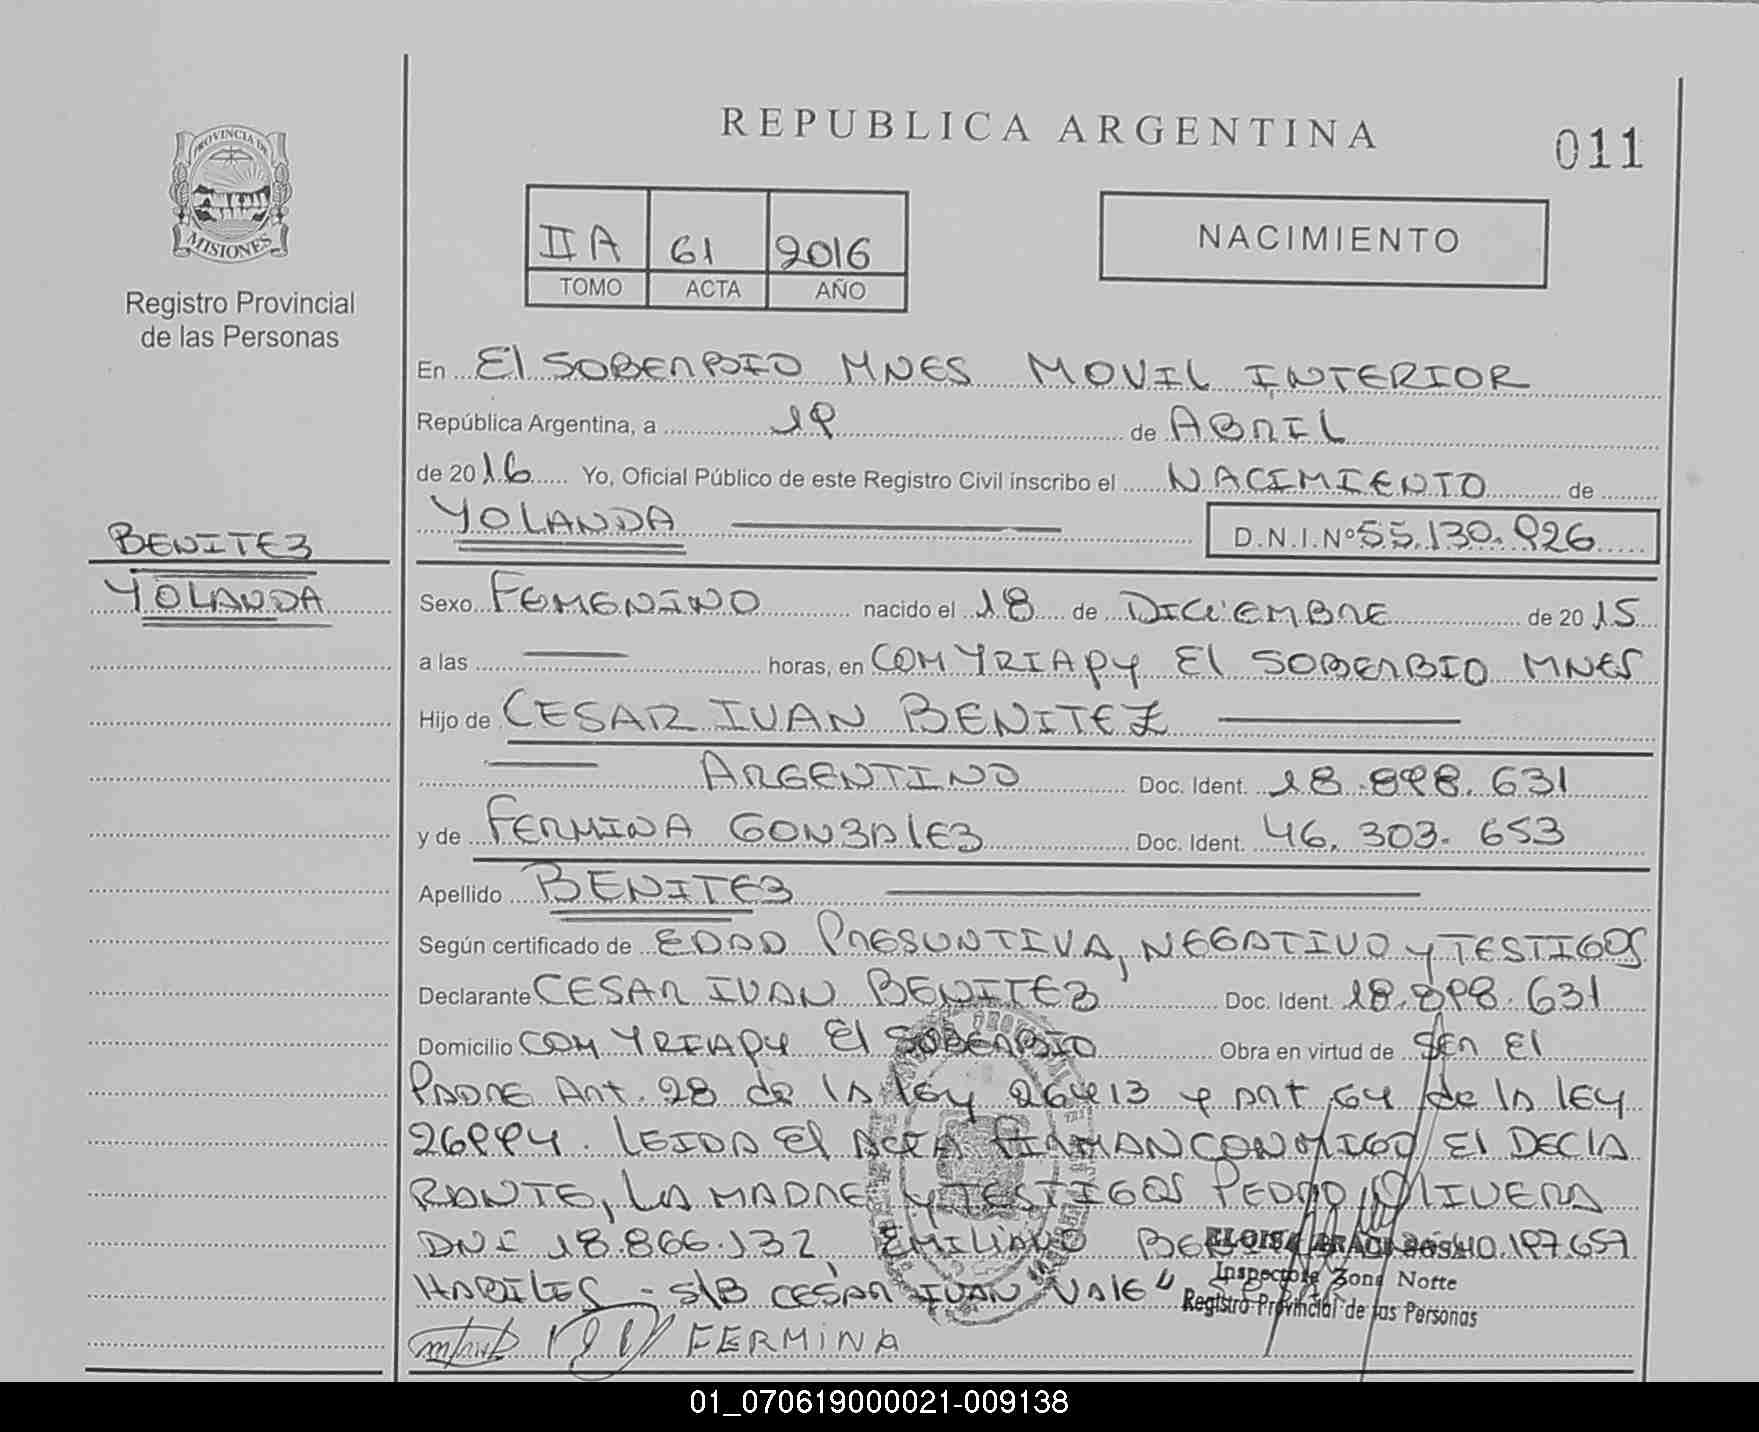 REPUBLICA ARGENTINA
011
PROVINCIA DE
MISIONES
Registro Provincial
de las Personas
IIA 61 2016
TOMO ACTA AÑO
NACIMIENTO
En El SOBERBIO MNES MOVIL INTERIOR
República Argentina, a 19 de ABRIL
de 2016 Yo, Oficial Público de este Registro Civil inscribo el NACIMIENTO de
YOLANDA D.N.I.Nº 55.130.926
BENITEZ
YOLANDA
Sexo FEMENINO nacido el 18 de DICIEMBRE de 2015
a las horas, en COM YRIAPY El SOBERBIO MNES
Hijo de CESAR IVAN BENITEZ
ARGENTINO Doc. Ident. 18.898.631
y de FERMINA GONZALEZ Doc. Ident. 46.303.653
Apellido BENITEZ
Según certificado de EDAD PRESUNTIVA, NEGATIVO y TESTIGOS
Declarante CESAR IVAN BENITEZ Doc. Ident. 18.898.631
Domicilio COM YRIAPY El SOBERBIO Obra en virtud de SER El
PADRE Art. 28 de lA ley 26413 y Art 64 de lA lEY
26994. LEIDA El ACTA FIRMAN CONMIGO El DECLA
RANTE, LA MADRE y TESTIGOS PEDRO OLIVERA
DNI 18.866.132, EMILIANO 40.197.659
HABILES - S/B CESAR IVAN VALE
Inspectora Zona Norte
Registro Provincial de las Personas
FERMINA
01_070619000021-009138